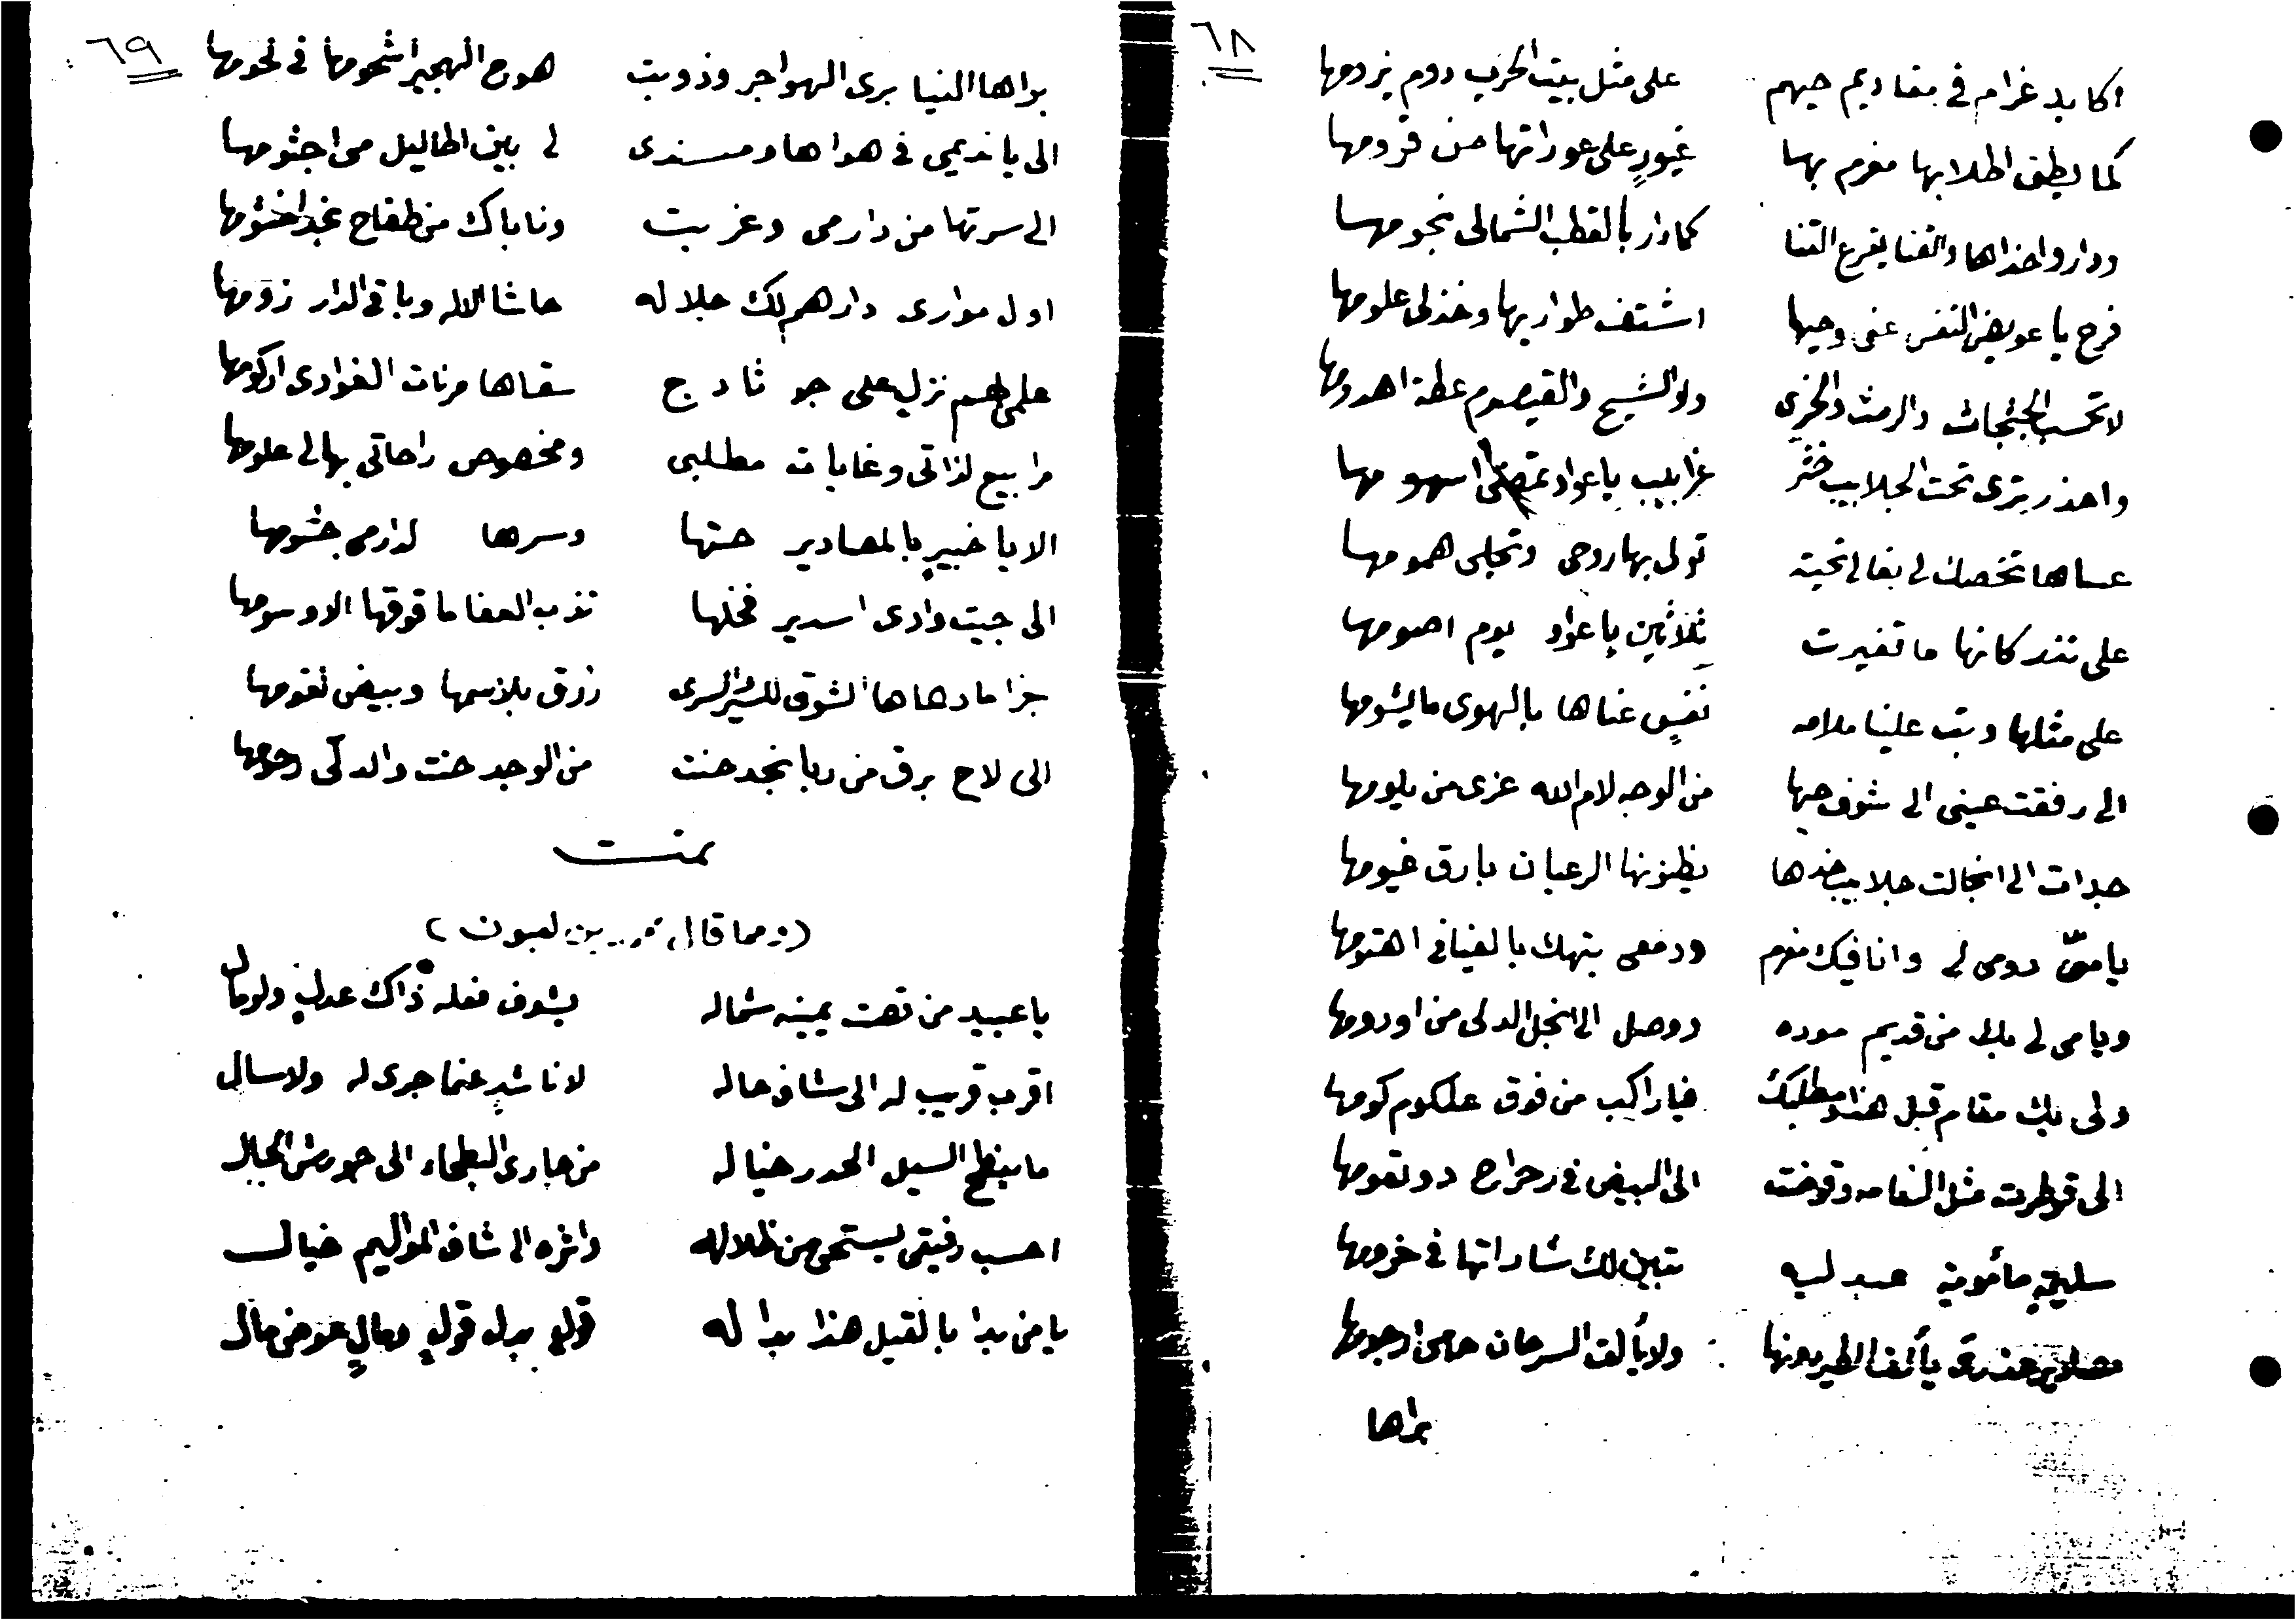 ٦٨
اكابد غرام في مقاديم حيهم على مثل بيت الحرب دوم يزومها
كما يطيق اطلابها مغرم بها غيورٍ على عوراتها من قرومها
وداروا حذاها والقنا يقرع القنا كما دار بالقطب الشمالي نجومها
فرح يا عويض النفس عني وحيها اشتف طواريها وخذ لي علومها
لا تحسب الجثجاث والرمث والخزى ولا الشيح والقيصوم عطة اهدومها
واحذر ترى تحت الجلابيب خثر غرابيب ياعواد تمصي اسهومها
عساها تخصك لي بغالي تحيه تولى بها روحي وتجلى همومها
على نذر كانها ما تغيرت ثلاثين ياعواد يوم اصومها
على مثلها وتب علينا ملامه نفسٍ عناها بالهوى ما يشومها
الى رفقت عيني الى شوف حيها من الوجد لام الله عزى من يلومها
حدات الى انجالت جلابيب خدها يظنونها الرعيان بارق غيومها
يا مي دومي لي وانا فيك مغرم ودمعي ينهك بالفيافي اهتومها
ويا مي لي بالك من قديم موده ووصل الى انجل الدلى من اورومها
ولي بك مقام قبل هذا ومطلبك فيا راكب من فوق علكوم كومها
الى قوطرت مثل النعامه وقوضت الى البيض في رحراح دو تقومها
سليمةٍ مأمونة عبدليه تبين لك شاراتها في خرومها
يألف الطير دونها ولا يألف السرحان حامي اوجومها
براها
٦٩
براها النيا برى الهواجر وذوبت هوج الهجير اشحومها في لحومها
الى يا نديمي في هواها ومسندي لي بين اطاليل مي اجثومها
الى سرتها من دار مي وغربت ونا باك من طفاح نجد اخشومها
اول مواري دارهم لك جلاله حاشا الاله وباقي الدار زومها
على هم نزلٍ على جو ثادج سقاها مزنات الغوادي اركومها
مرابيع لذاتي وغايات مطلبي ومخصوص راحاتي بها لي علومها
الا يا خبيرٍ بالمصادير حثها وسرها لدارمي جثومها
الى جيت وادي اسدير فخلها تذب العفا ما فوقها الا وسومها
جزا ما دهاها الشوق للسير السرى زرق بلاسمها وبيض لغومها
الى لاح برق من ربا نجد حنت من الوجد حنت والدكى وحومها
تمت
(ومما قال محمد بن لعبون)
يا عبيد من تهت يمينه شماله يشوف فعله ذاك عدلٍ ولو مال
اقرب قريب له الى شاف حاله لا ناشدٍ عنما جرى له ولا سال
ما ينطح السيل الحدر خياله من جارى البطحاء الى حورش الجال
احسب رفيقي يستحي من ظلاله واثره الى شاف المواليم خيال
يا من بدا بالقيل هذا بدا له قولٍ بدل قولٍ ومالٍ عوض مال